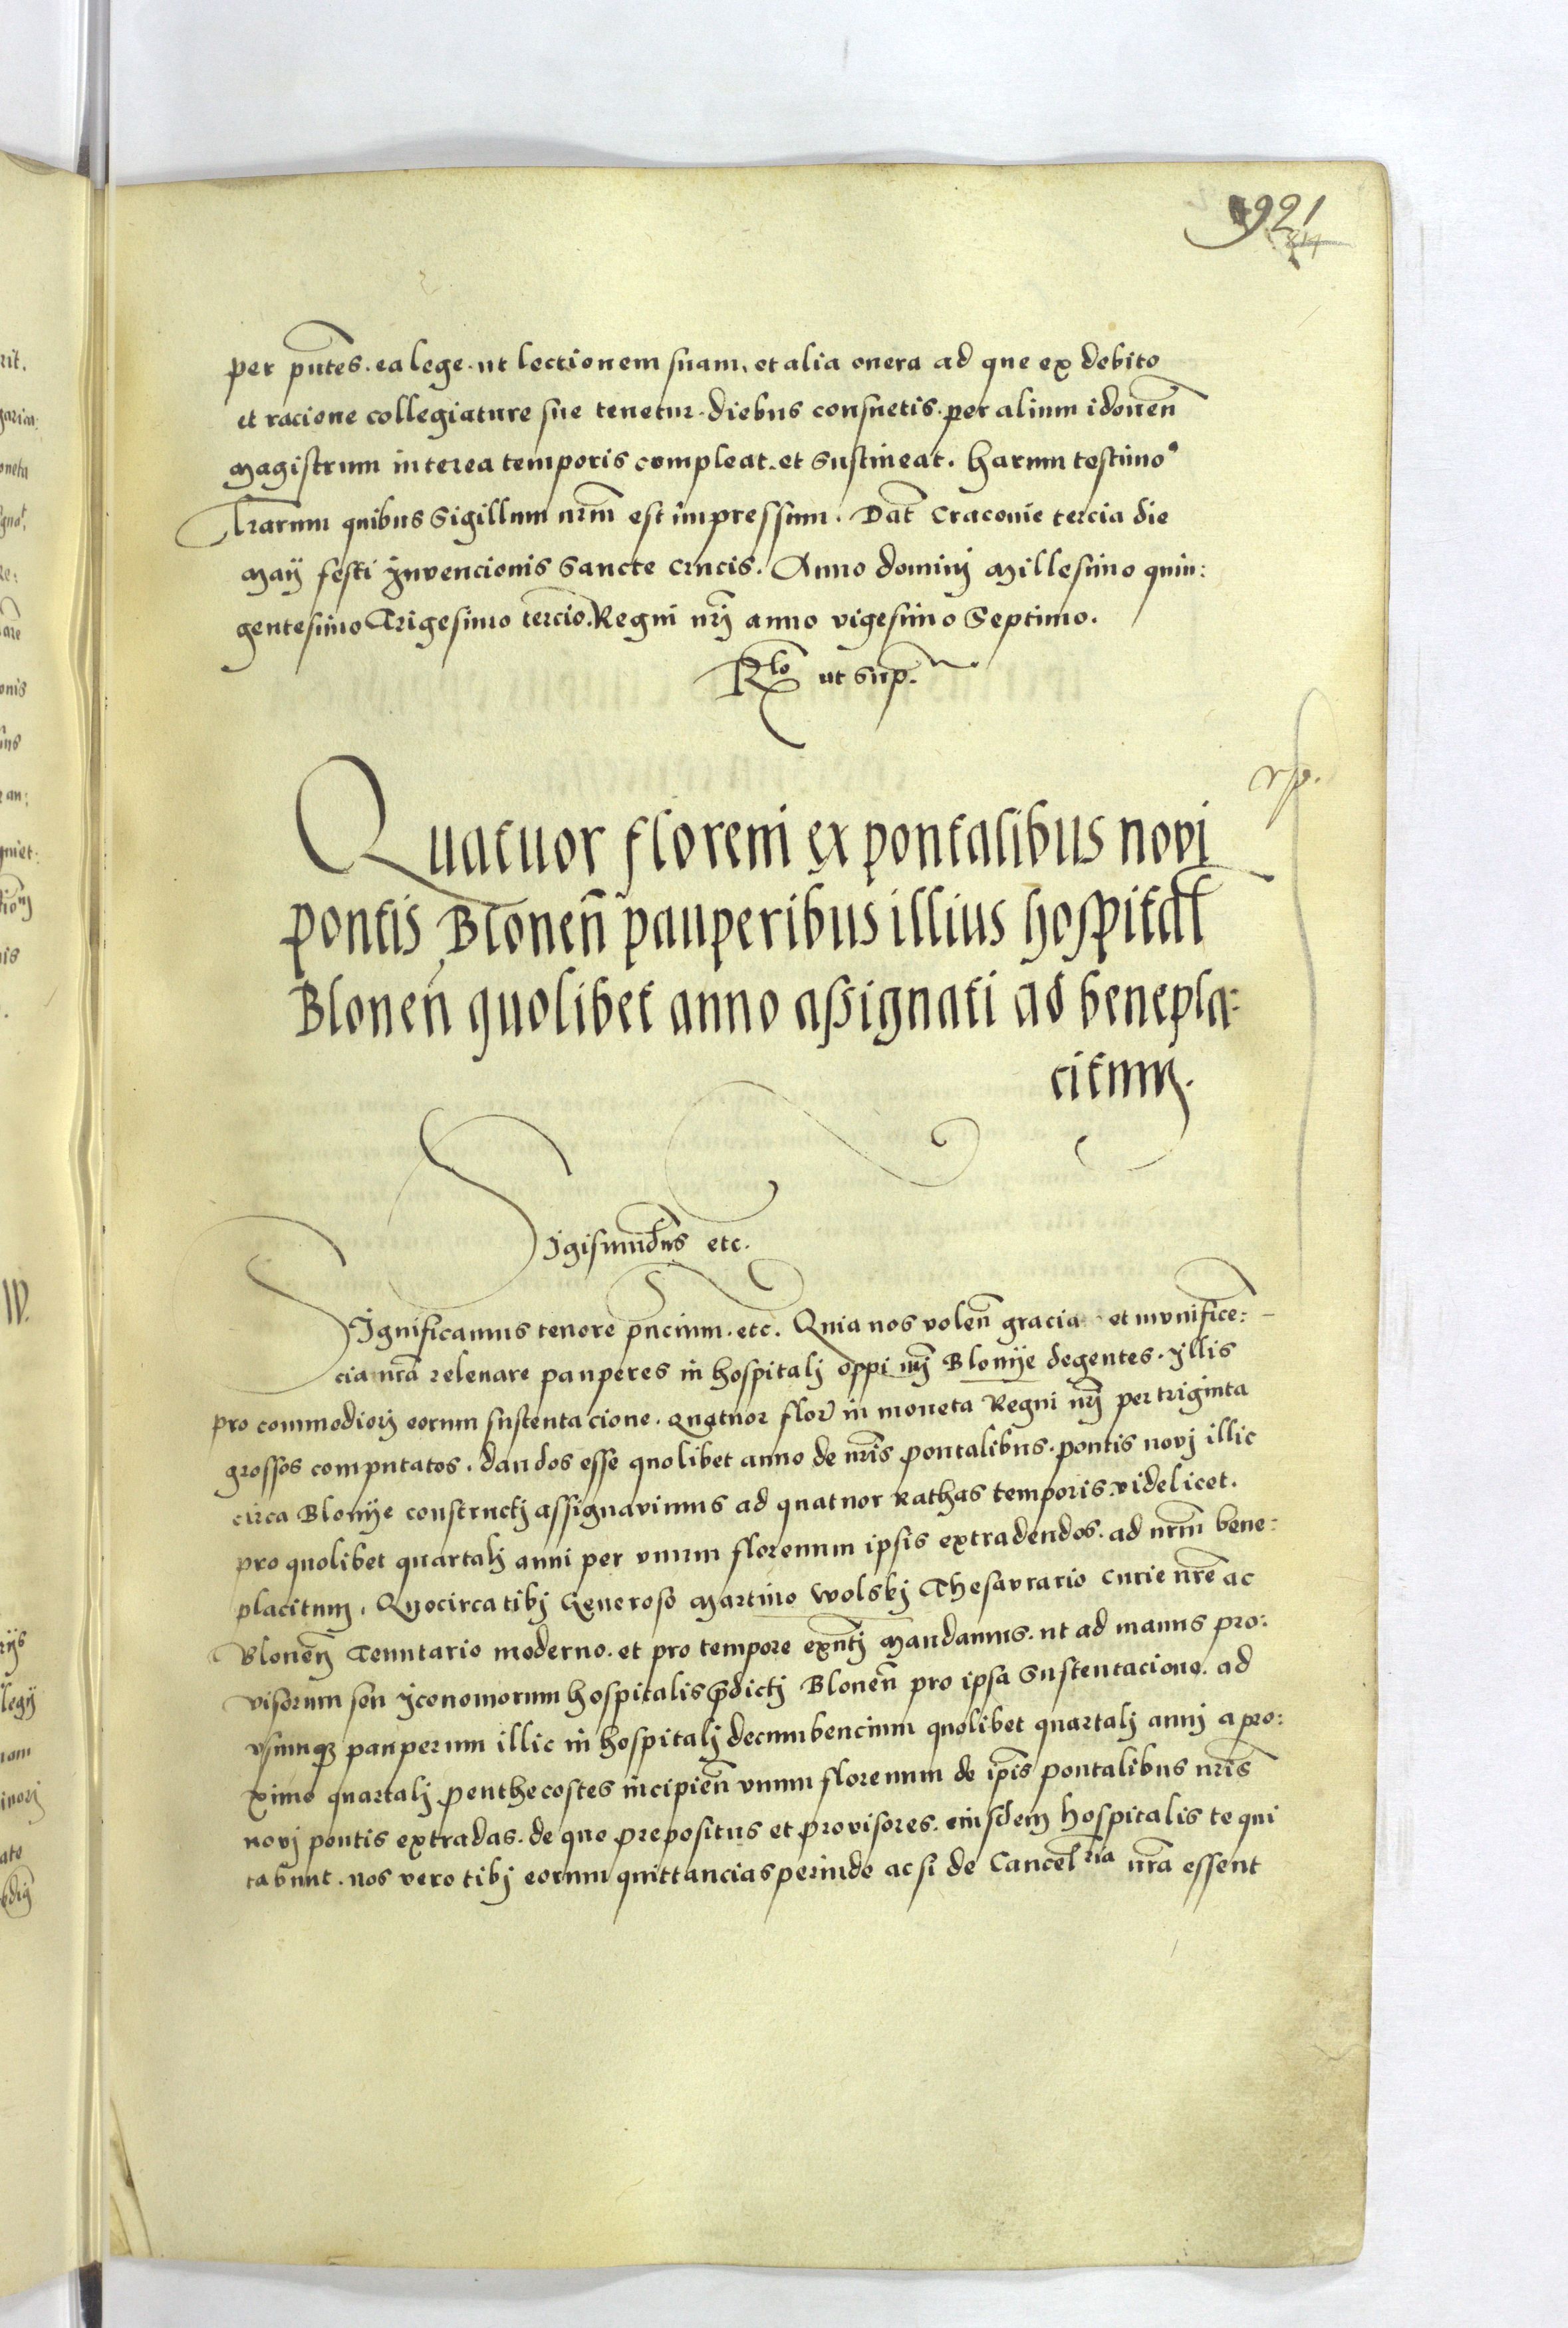 921
per pñtes. ea lege. ut lectionem suam. et alia onera ad que ex debito
et racione collegiature sue tenetur. diebus consuetis. per alium idoneũ
magistrum interea temporis compleat. et sustineat. harum testimoº
lr̃arum quibus sigillum nr̃m est impressum. Dat̃ Cracovie tercia die
Maij festi Invencionis Sancte crucis. Anno dominj Millesimo quin:
gentesimo Trigesimo tercio. Regni nrj̃ anno vigesimo Septimo.
Rlõ ut sup.
rp.
Quatuor floreni ex pontalibus novi
pontis Blonen̄ pauperibus illius hospital̃
Blonen̄ quolibet anno assignati ad benepla:
citum.
Sigismundus etc.
Significamus tenore pñcium. etc. Quia nos volen̄ gracia et munifice:
cia nr̃a relevare pauperes in hospitalj oppi nrj̃ Blonije degentes. yllis
pro commodiorj eorum sustentacione. quatuor flor̃ in moneta Regni nrj̃ per triginta
grossos computatos. dandos esse quolibet anno de nr̃is pontalibus. pontis novj illic
circa Blonije constructj assignavimus ad quatuor rathas temporis. videlicet.
pro quolibet quartalj anni per unum florenum ipsis extradendos. ad nr̃m bene:
placitum. Quocirca tibj Generoso Martino Wolskj Thesaurario curie nr̃e ac
Blonen̄ Tenutario moderno. et pro tempore exñtj Mandamus. ut ad manus pro:
visorum seu yconomorum hospitalis p̃dictj Blonen̄ pro ipsa sustentacione. ad
usumq3 pauperum illic in hospitalj decumbencium quolibet quartalj annj a pro:
ximo quartalj penthecostes incipien̄ unum florenum de ip̃is pontalibus nr̃is
novj pontis extradas. de quo prepositus et provisores. eiusdem hospitalis te qui
tabunt. nos vero tibj eorum quittancias perinde ac si de Cancel̃ria nr̃a essent